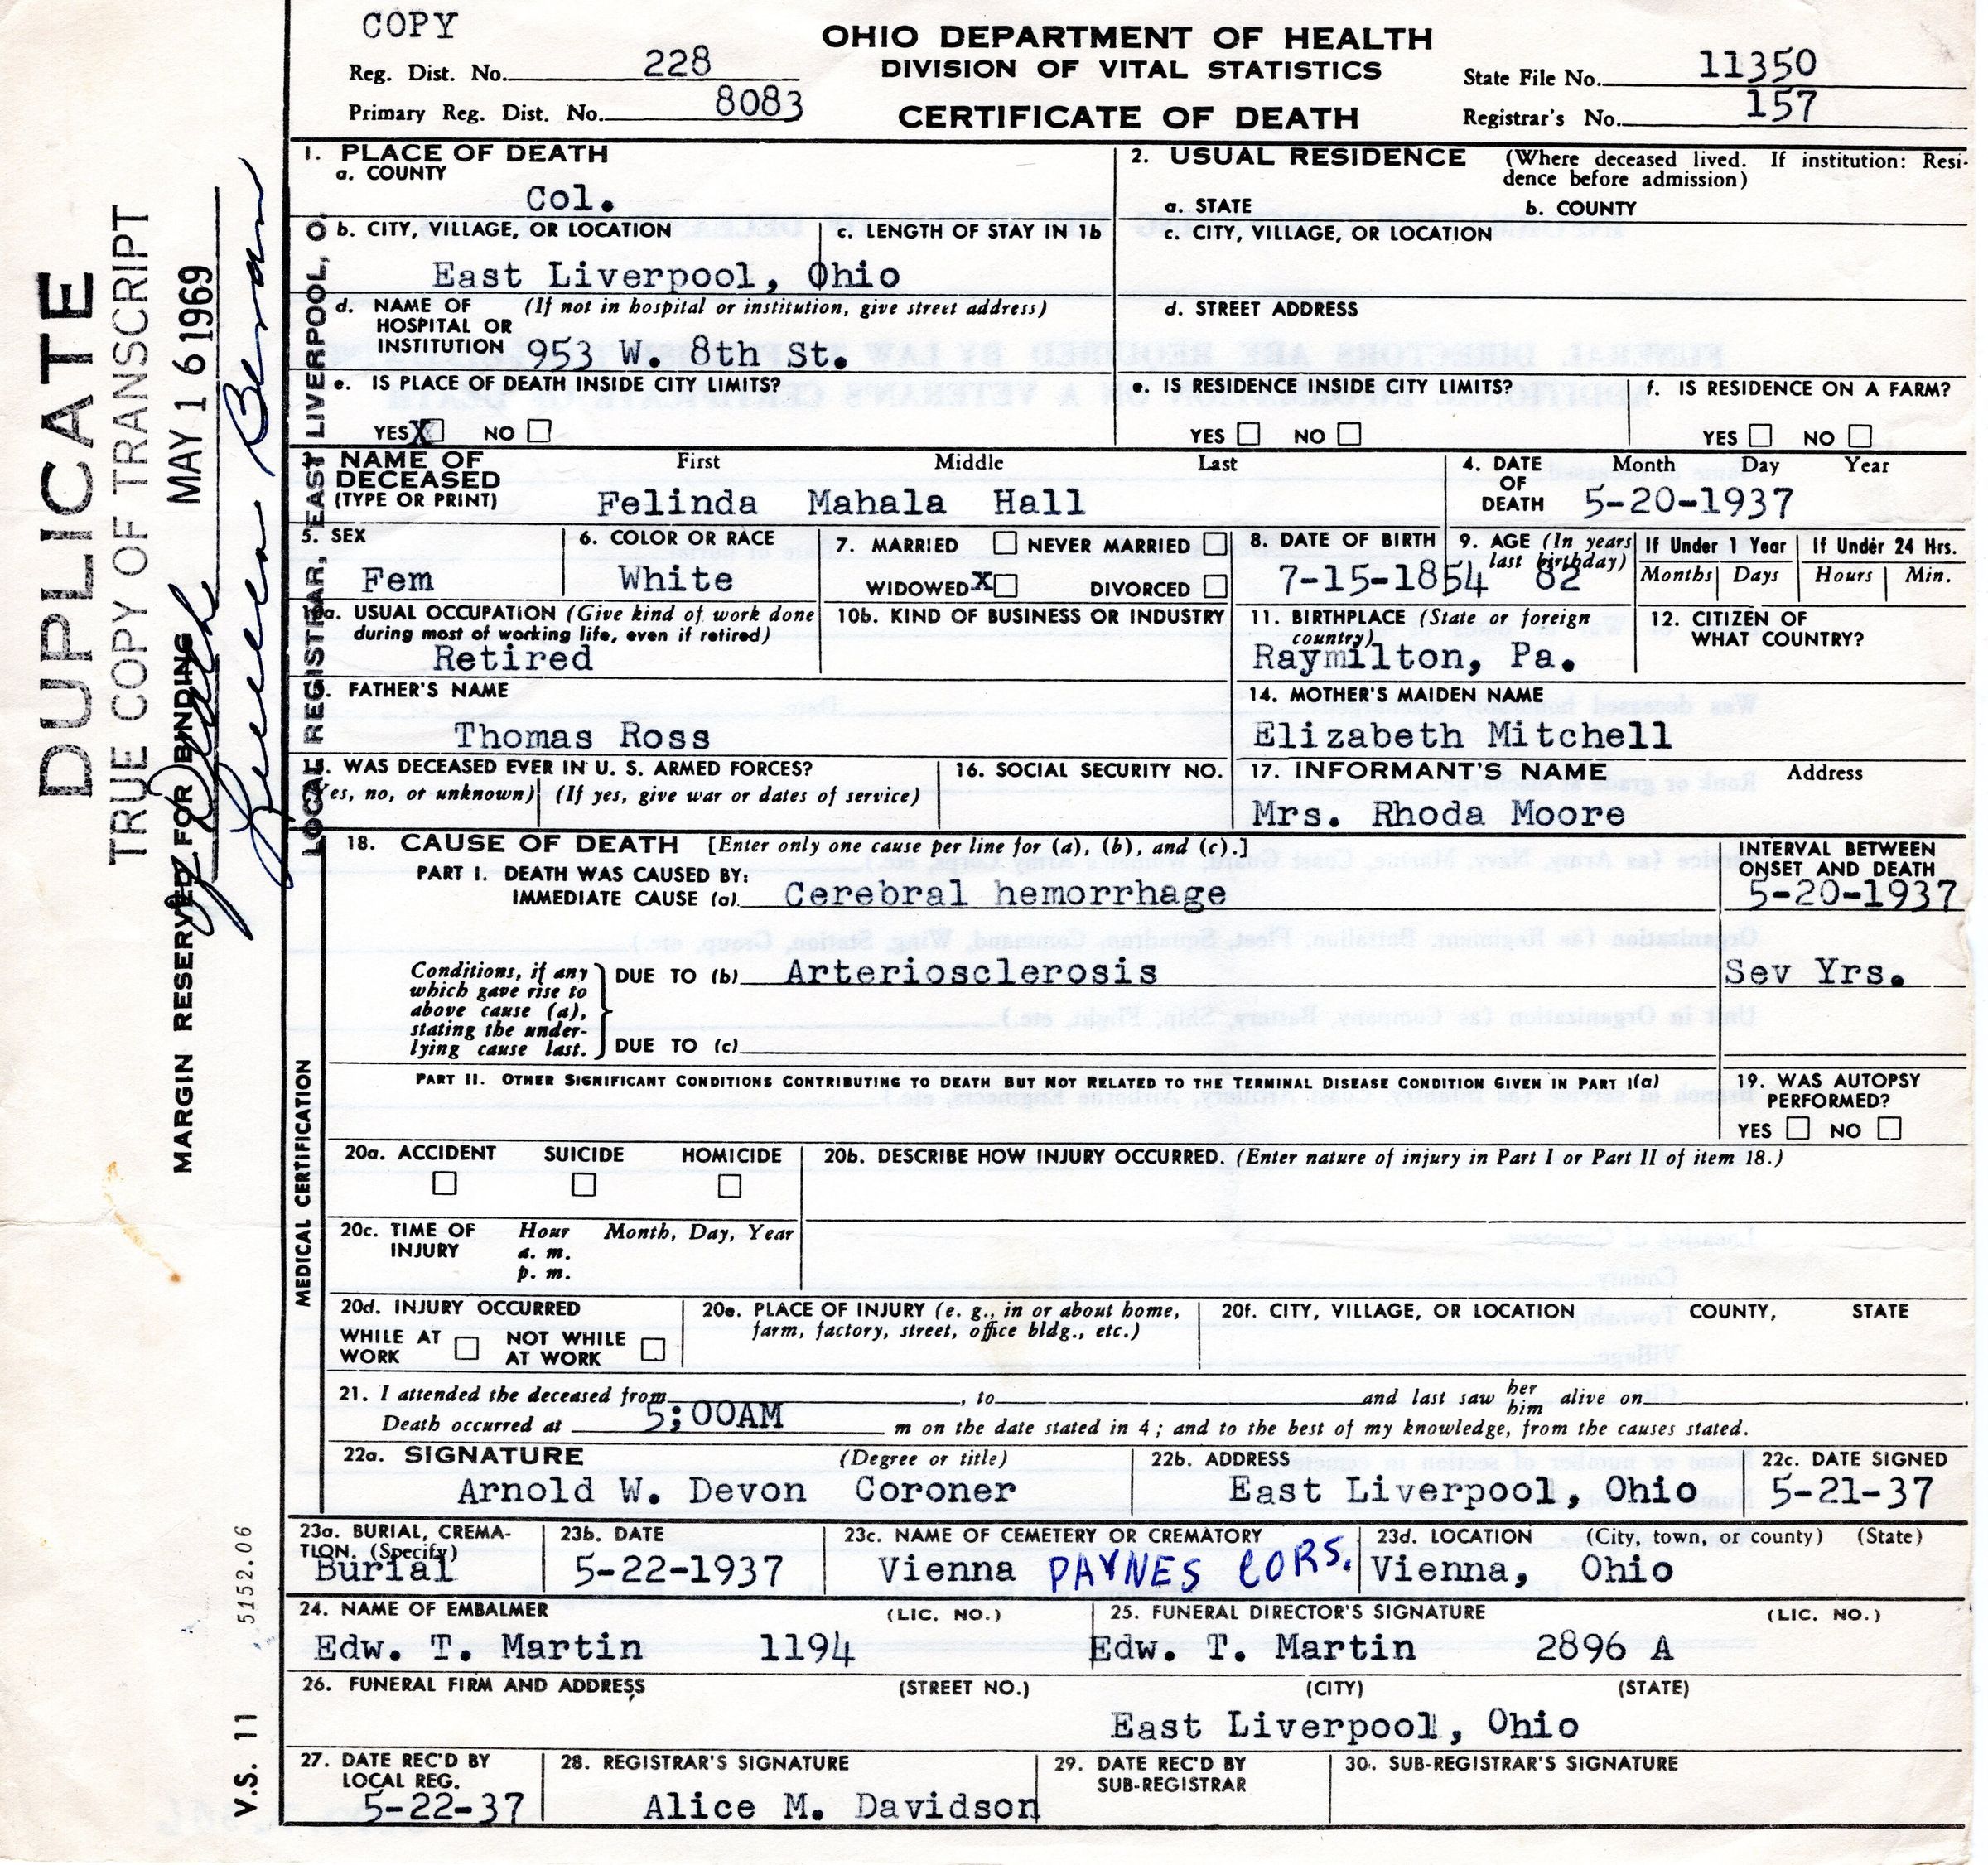 COPY
OHIO DEPARTMENT OF HEALTH
DIVISION OF VITAL STATISTICS
CERTIFICATE OF DEATH
Reg. Dist. No. 228
Primary Reg. Dist. No. 8083
State File No. 11350
Registrar's No. 157
1. PLACE OF DEATH
a. COUNTY
Col.
b. CITY, VILLAGE, OR LOCATION c. LENGTH OF STAY IN 1b
East Liverpool, Ohio
d. NAME OF (If not in hospital or institution, give street address)
HOSPITAL OR
INSTITUTION 953 W. 8th St.
e. IS PLACE OF DEATH INSIDE CITY LIMITS?
YES X NO
2. USUAL RESIDENCE (Where deceased lived. If institution: Resi-
dence before admission)
a. STATE b. COUNTY
c. CITY, VILLAGE, OR LOCATION
d. STREET ADDRESS
e. IS RESIDENCE INSIDE CITY LIMITS? f. IS RESIDENCE ON A FARM?
YES NO YES NO
NAME OF First Middle Last
DECEASED
(TYPE OR PRINT) Felinda Mahala Hall
4. DATE Month Day Year
OF
DEATH 5-20-1937
5. SEX
Fem
6. COLOR OR RACE
White
7. MARRIED NEVER MARRIED
WIDOWED X DIVORCED
8. DATE OF BIRTH
7-15-1854
9. AGE (In years
last birthday)
82
If Under 1 Year If Under 24 Hrs.
Months Days Hours Min.
10a. USUAL OCCUPATION (Give kind of work done
during most of working life, even if retired)
Retired
10b. KIND OF BUSINESS OR INDUSTRY
11. BIRTHPLACE (State or foreign
country)
Raymilton, Pa.
12. CITIZEN OF
WHAT COUNTRY?
13. FATHER'S NAME
Thomas Ross
14. MOTHER'S MAIDEN NAME
Elizabeth Mitchell
15. WAS DECEASED EVER IN U. S. ARMED FORCES?
(Yes, no, or unknown) (If yes, give war or dates of service)
16. SOCIAL SECURITY NO.
17. INFORMANT'S NAME Address
Mrs. Rhoda Moore
18. CAUSE OF DEATH [Enter only one cause per line for (a), (b), and (c).]
PART I. DEATH WAS CAUSED BY:
IMMEDIATE CAUSE (a) Cerebral hemorrhage
INTERVAL BETWEEN
ONSET AND DEATH
5-20-1937
Conditions, if any
which gave rise to
above cause (a),
stating the under-
lying cause last.
DUE TO (b) Arteriosclerosis
Sev Yrs.
DUE TO (c)
PART II. OTHER SIGNIFICANT CONDITIONS CONTRIBUTING TO DEATH BUT NOT RELATED TO THE TERMINAL DISEASE CONDITION GIVEN IN PART I(a)
19. WAS AUTOPSY
PERFORMED?
YES NO
20a. ACCIDENT SUICIDE HOMICIDE
20b. DESCRIBE HOW INJURY OCCURRED. (Enter nature of injury in Part I or Part II of item 18.)
20c. TIME OF Hour Month, Day, Year
INJURY a. m.
p. m.
20d. INJURY OCCURRED
WHILE AT NOT WHILE
WORK AT WORK
20e. PLACE OF INJURY (e. g., in or about home,
farm, factory, street, office bldg., etc.)
20f. CITY, VILLAGE, OR LOCATION COUNTY, STATE
21. I attended the deceased from , to and last saw her him alive on
Death occurred at 5;00AM m on the date stated in 4; and to the best of my knowledge, from the causes stated.
22a. SIGNATURE (Degree or title)
Arnold W. Devon Coroner
22b. ADDRESS
East Liverpool, Ohio
22c. DATE SIGNED
5-21-37
23a. BURIAL, CREMA-
TION. (Specify)
Burial
23b. DATE
5-22-1937
23c. NAME OF CEMETERY OR CREMATORY
Vienna PAYNES CORS.
23d. LOCATION (City, town, or county) (State)
Vienna, Ohio
24. NAME OF EMBALMER (LIC. NO.)
Edw. T. Martin 1194
25. FUNERAL DIRECTOR'S SIGNATURE (LIC. NO.)
Edw. T. Martin 2896 A
26. FUNERAL FIRM AND ADDRESS (STREET NO.) (CITY) (STATE)
East Liverpool, Ohio
27. DATE REC'D BY
LOCAL REG.
5-22-37
28. REGISTRAR'S SIGNATURE
Alice M. Davidson
29. DATE REC'D BY
SUB-REGISTRAR
30. SUB-REGISTRAR'S SIGNATURE
DUPLICATE
TRUE COPY OF TRANSCRIPT
MAY 16 1969
MARGIN RESERVED FOR BINDING
LOCAL REGISTRAR, EAST LIVERPOOL, O.
MEDICAL CERTIFICATION
V.S. 11 5152.06